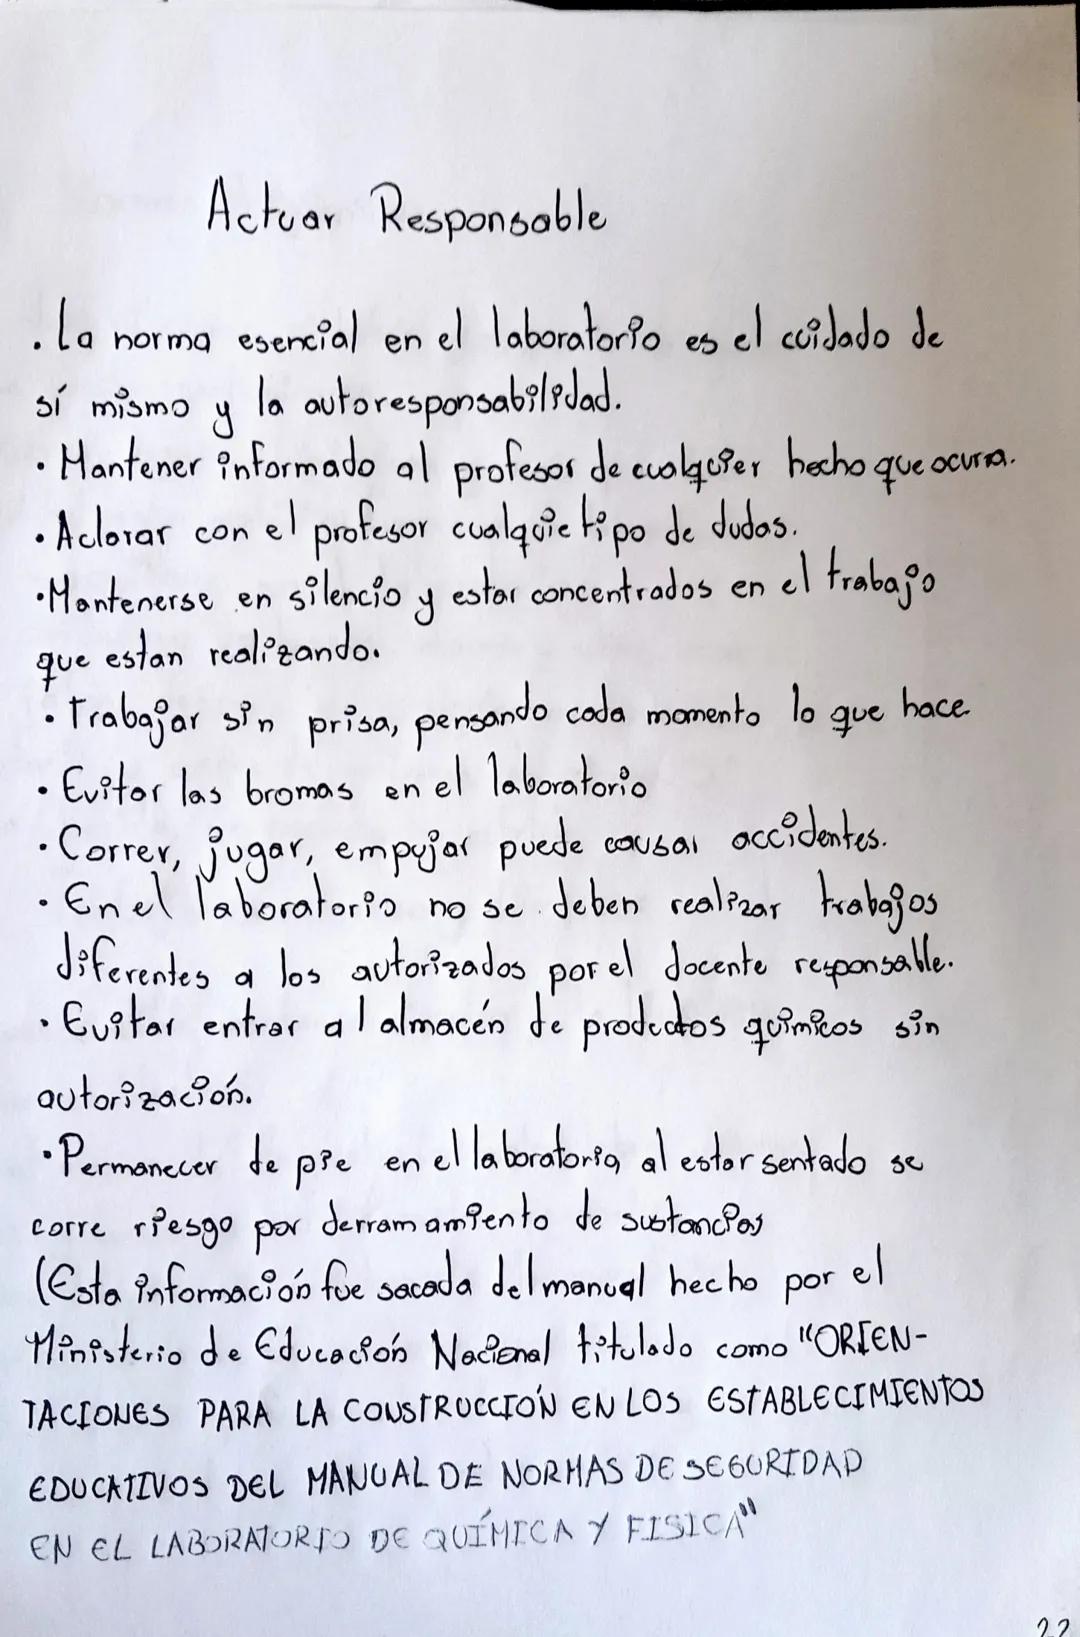 Actuar Responsable
. La norma esencial en el laboratorio es el cuidado de
sí mismo y la autoresponsabilidad.
· Mantener informado al profesor de cualquier hecho que ocurra.
· Aclarar con el profesor cualquie tipo de dudas.
· Mantenerse en silencio y estar concentrados en el trabajo
que estan realizando.
· Trabajar sin prisa, pensando cada momento lo que hace
· Evitar las bromas en el laboratorio
· Correr, jugar, empujar puede causar accidentes.
· En el laboratorio no se deben realizar trabajos
diferentes a los autorizados por el docente responsable.
· Evitar entrar al almacén de productos químicos sin
autorización.
· Permanecer de pie en el laboratorio, al estar sentado se
corre riesgo por derramamiento de sustancias
(Esta información fue sacada del manual hecho por el
Ministerio de Educación Nacional titulado como "ORIEN-
TACIONES PARA LA CONSTRUCCIÓN EN LOS ESTABLECIMIENTOS
EDUCATIVOS DEL MANUAL DE NORMAS DE SEGURIDAD
EN EL LABORATORIO DE QUÍMICA Y FISICA"
22